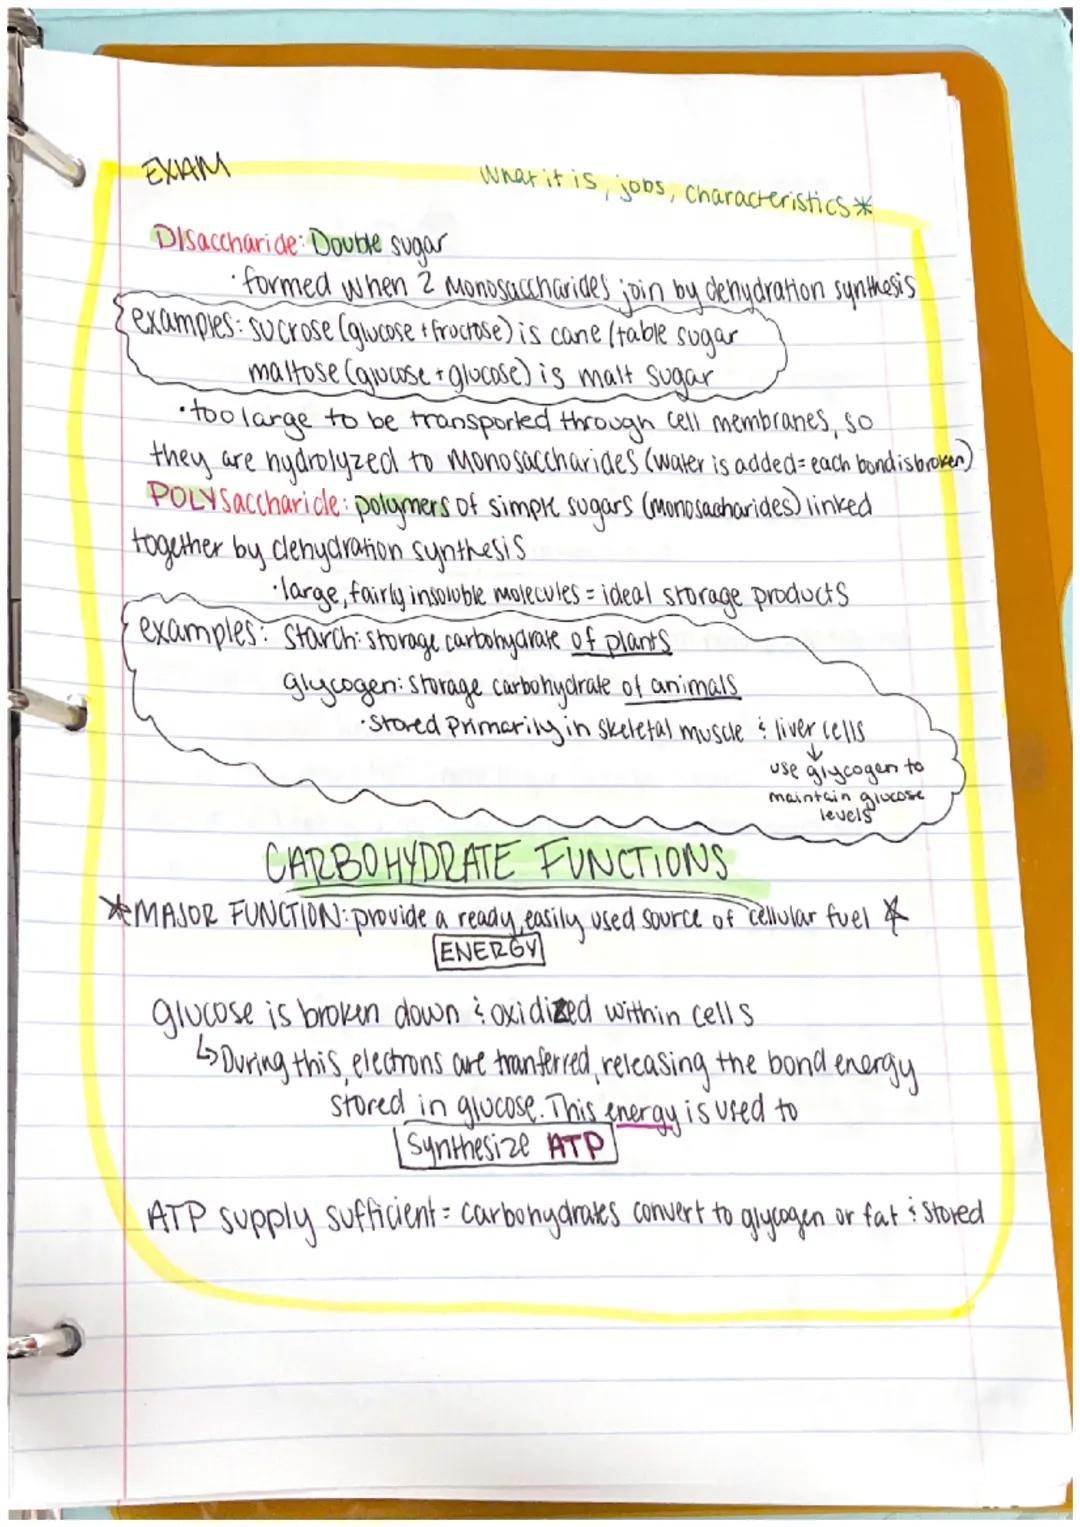 EXAM
What it is, jobs, characteristics*
DIsaccharide: Double sugar
·formed when 2 Monosaccharides join by dehydration synthesis
examples: sucrose (glucose + fructose) is cane/table sugar
maltose (glucose + glucose) is malt sugar
·too large to be transported through cell membranes, so
they are hydrolyzed to Monosaccharides (water is added= each bond is broken)
POLYSaccharide: polymers of simple sugars (monosaccharides) linked
together by dehydration synthesis
·large, fairly insoluble molecules = ideal storage products
examples: Starch: storage carbohydrate of plants
glycogen: storage carbohydrate of animals
·Stored Primarily in skeletal muscle & liver cells
↓
use glycogen to
maintain glucose
levels
CARBOHYDRATE FUNCTIONS
*MAJOR FUNCTION: provide a ready, easily used source of cellular fuel *
ENERGY
glucose is broken down & oxidized within cells
↳During this, electrons are tranferred, releasing the bond energy
stored in glucose. This energy is used to
Synthesize ATP
ATP supply sufficient= carbohydrates convert to glycogen or fat & stored